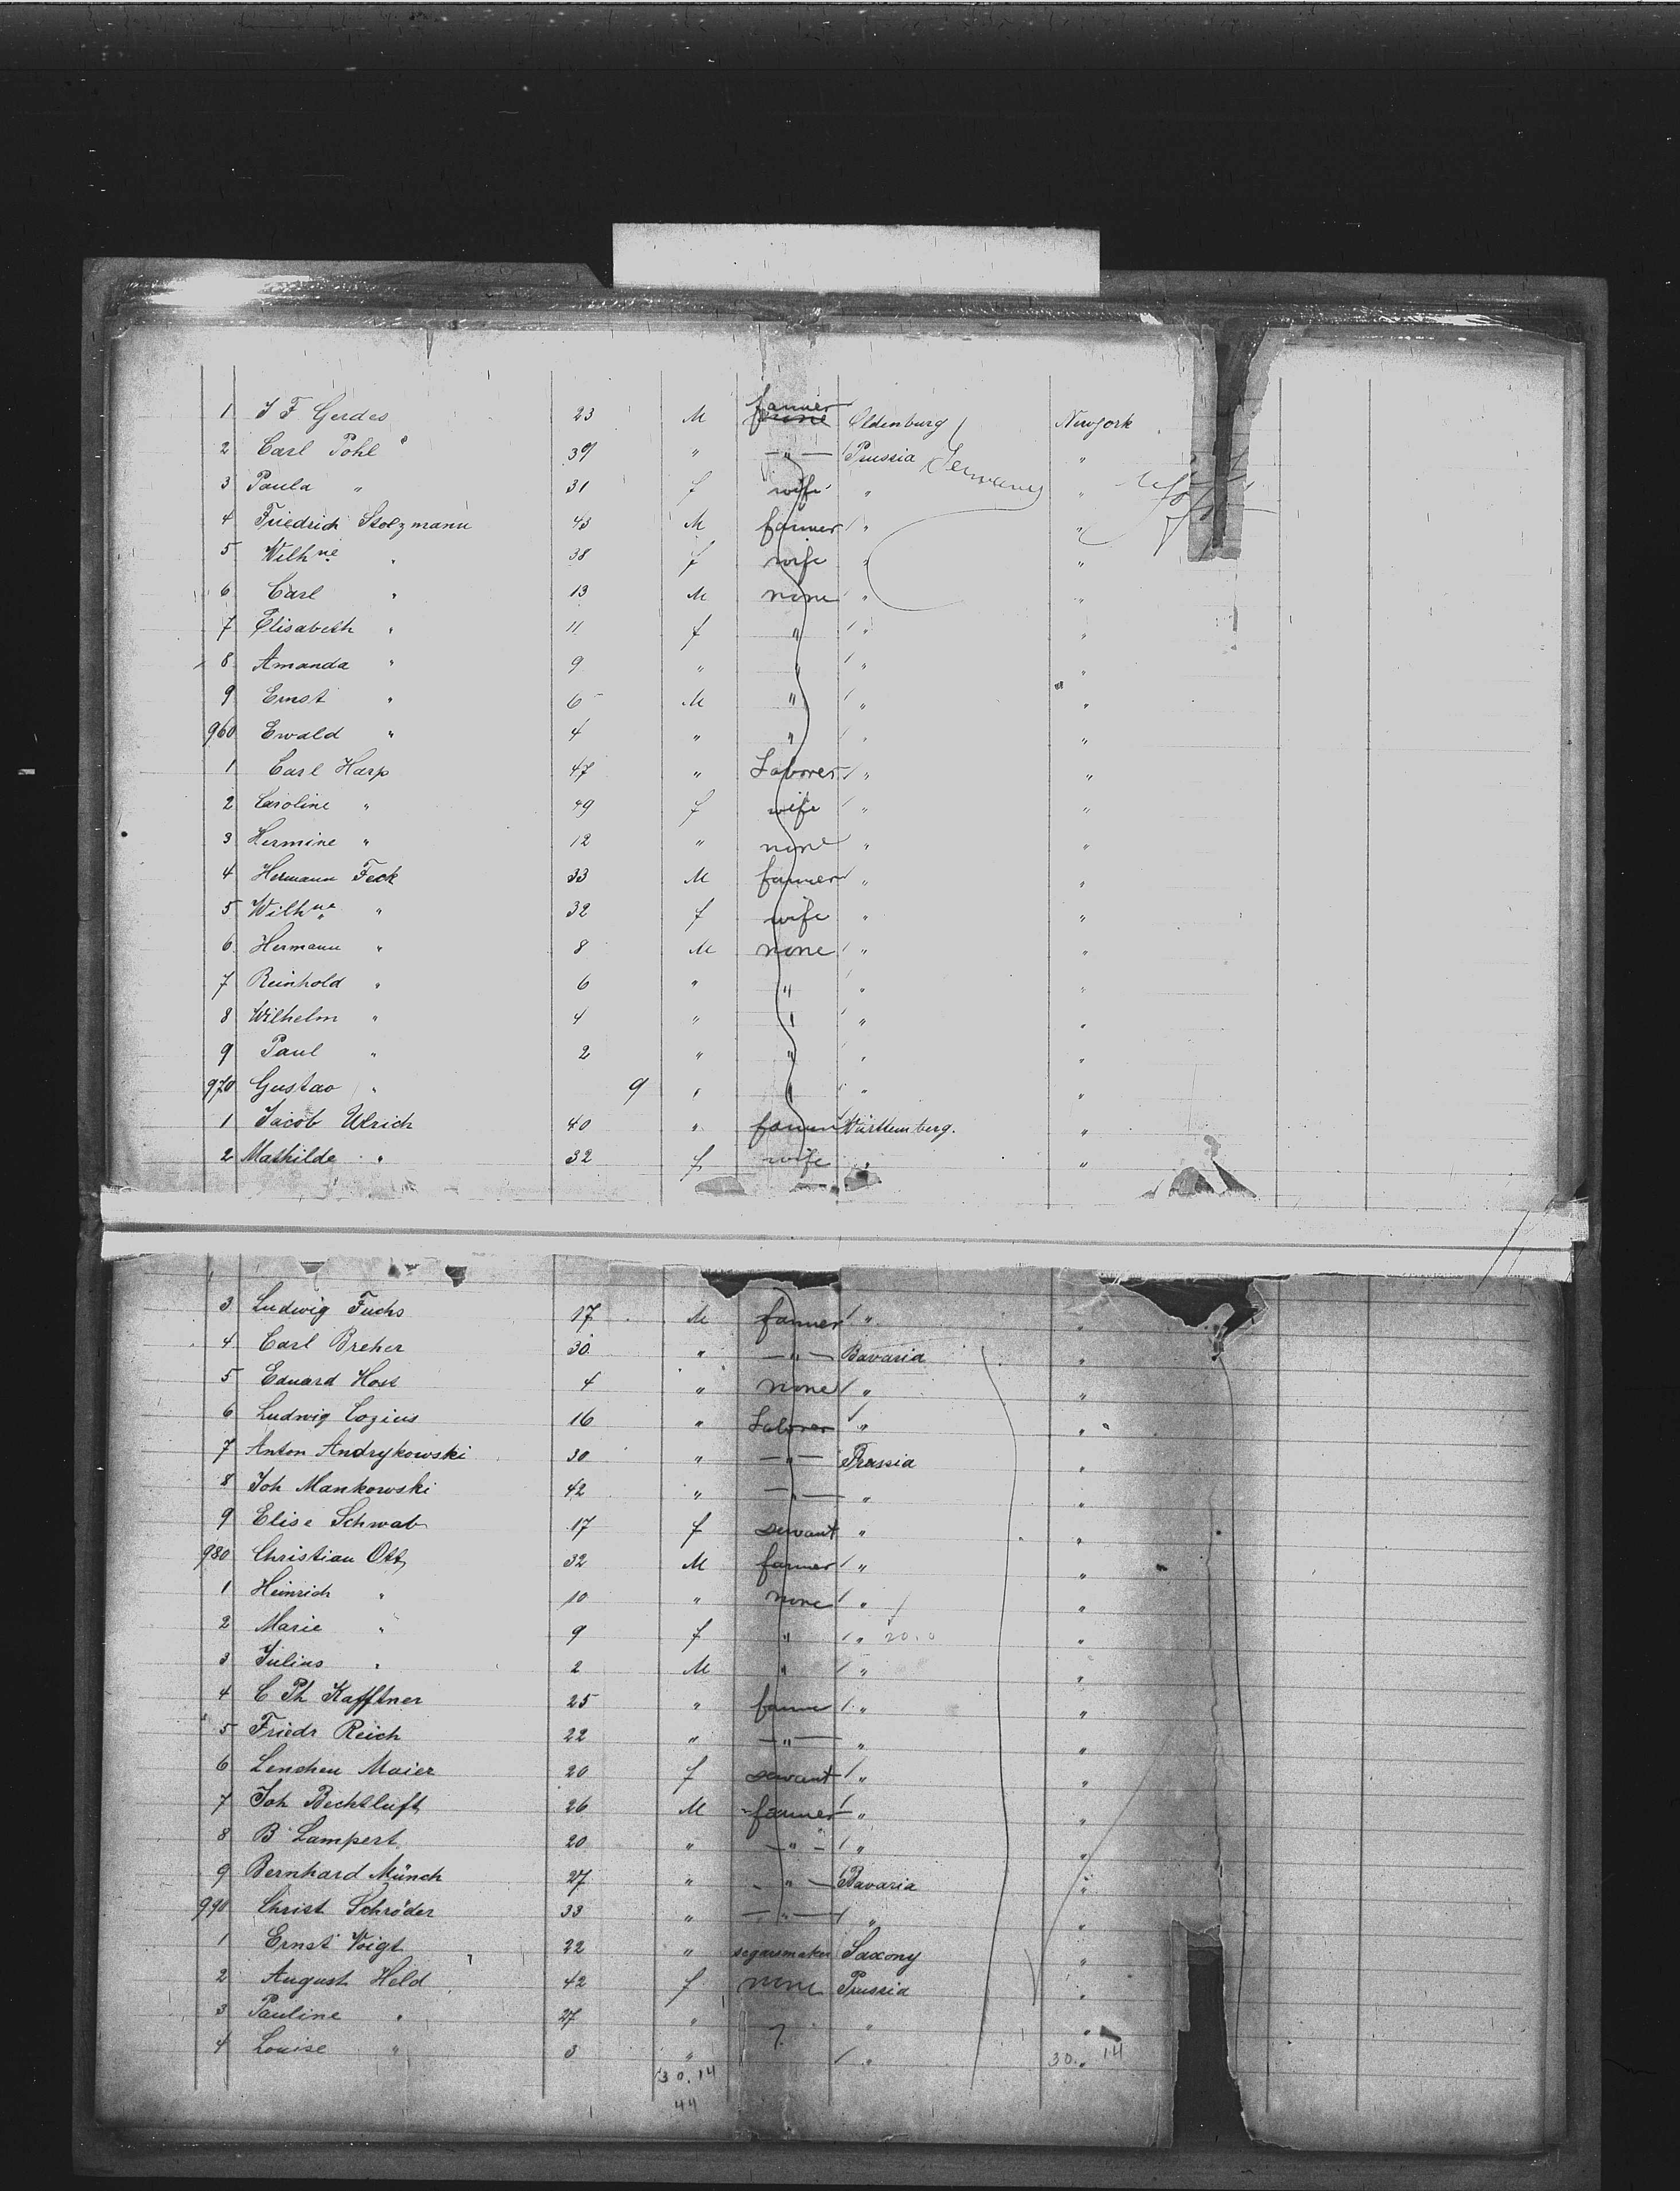 1 J F Gerdes 23 M farmer Oldenburg Newyork
2 Carl Pohl 39 " — " — Prussia Germany "
3 Paula " 31 f wife " "
4 Friedrich Stolzmann 43 M farmer " "
5 Wilhne " 38 f wife " "
6 Carl " 13 M none " "
7 Elisabeth " 11 f " " "
8 Amanda " 9 " " " "
9 Ernst " 6 M " " "
960 Ewald " 4 " " " "
1 Carl Harp 47 " Laborer " "
2 Caroline " 49 f wife " "
3 Hermine " 12 " none " "
4 Hermann Feck 33 M farmer " "
5 Wilhne " 32 f wife " "
6 Hermann " 8 M none " "
7 Reinhold " 6 " " " "
8 Wilhelm " 4 " " " "
9 Paul " 2 " " " "
970 Gustav " 9 " " " "
1 Jacob Ulrich 40 " farmer Württemberg. "
2 Mathilde " 32 f wife " "
3 Ludwig Fuchs 17 M farmer " "
4 Carl Breher 30 " — " — Bavaria "
5 Eduard Hoss 4 " none " "
6 Ludwig Cozius 16 " Laborer " "
7 Anton Andrykowski 30 " — " — Prussia "
8 Joh Mankowski 42 " — " — " "
9 Elise Schwab 17 f servant " "
980 Christian Ott 32 M farmer " "
1 Heinrich " 10 " none " "
2 Marie " 9 f " " 20.0 "
3 Julius " 2 M " " "
4 C Ph Kafftner 25 " farmer " "
5 Friedr Reich 22 " — " — " "
6 Lenchen Maier 20 f servant " "
7 Joh Bechtluft 26 M farmer " "
8 B Lampert 20 " — " — " "
9 Bernhard Münch 27 " — " — Bavaria "
990 Christ Schröder 33 " — " — " "
1 Ernst Voigt 22 " segarsmaker Saxony "
2 August Held 42 f none Prussia "
3 Pauline " 27 " " "
4 Louise " 3 " " "
30.14 30. 14
44